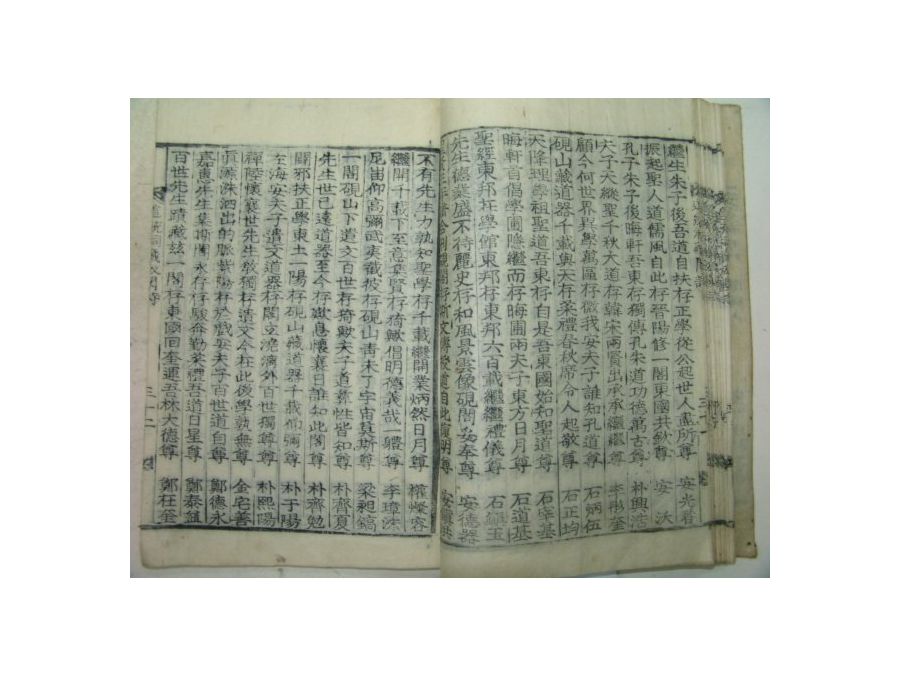 繼生朱子後吾道自扶存正學從公起世人盡所尊 安光看
振起聖人道儒風自此存晉陽修一閣東國共欽尊 安沃
孔子朱子後晦軒吾東存獨傳孔朱道功德萬古尊 朴興浩
夫子天縱聖千秋大道存韓宋兩賢出承承繼繼尊 李
顧今何世界異學萬區存微我安夫子誰知孔道尊 石炳伍
硯山藏道器千載與天存菜禮春秋席令人起敬尊 石正均
天降理學祖聖道吾東存自是吾東國始知聖道尊 石宰基
晦軒首倡學圃隱繼而存晦圃兩夫子東方日月尊 石道基
聖經東邦在學館東邦存東邦六百載繼繼禮儀尊 石玉
先生德業盛不待麗史存和風景雲像硯閣妥奉尊 安德器
不有先生力孰知聖學存千載繼開業炳然日月尊 權燦容
繼開千載下至意葉賢存猗歟倡明德義哉一軆尊 李璋
尼岳仰高彌武夷載彼存硯山靑未了宇宙莫斯尊 梁昶鎬
一閣硯山下遺文百世存猗歟夫子道彝性皆知尊 朴齊夏
先生世已遠遺器至今存欽息懷襄日誰知此閣尊 朴齊勉
闢邪扶正學東土一陽存硯山藏道器千載仰彌尊 朴于陽
左海安夫子遺文道器存閣立澆漓外百世獨尊尊 朴熙陽
禪陸懷襄世先生敎獨存遺文今在此後學孰無尊 金宅善
眞源洙泗出的脈紫陽存於戱安夫子百世東方尊 鄭德永
嘉惠先生業斯閣永存存駿奔勤菜禮吾道日星尊 鄭泰
百世先生蹟藏玆一閣存東國回奎運吾林大德尊 鄭在奎
道統祠
三十二